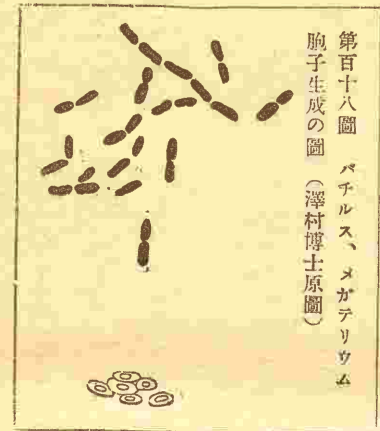 第百十八圖　バチルス、メガテリウム
胞子生成の圖　（澤村博士原圖）